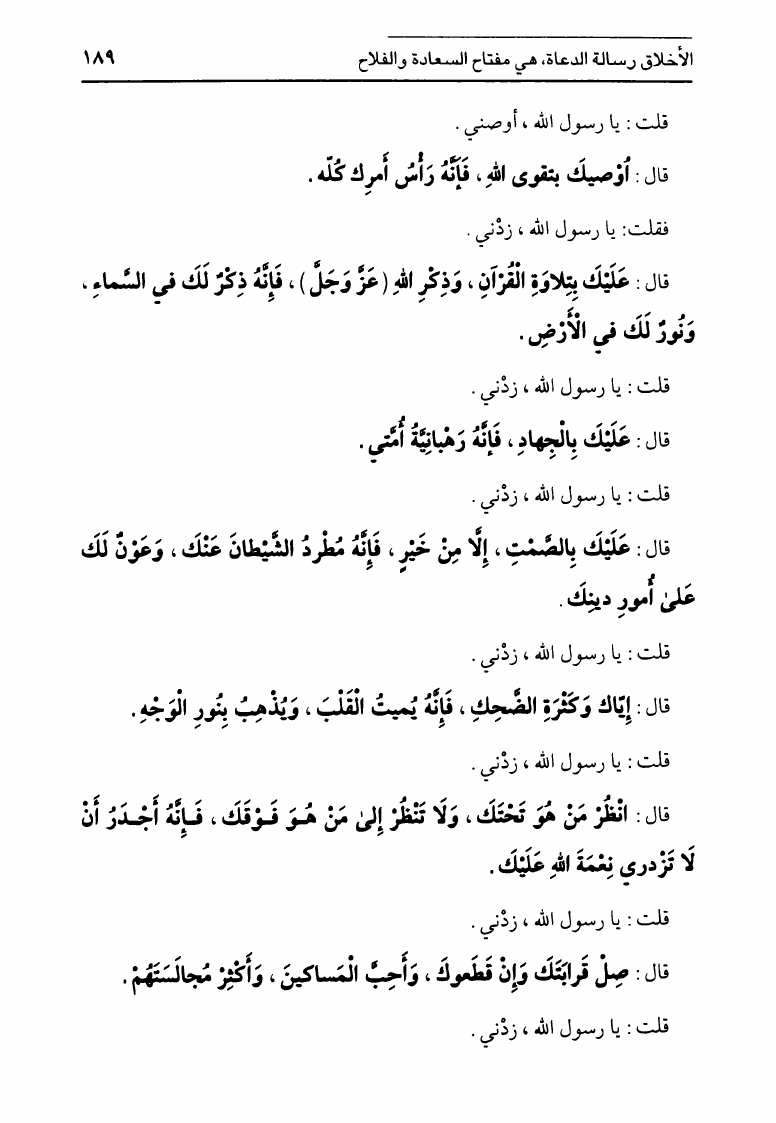 الأخلاق رسالة الدعاة، هي مفتاح السعادة والفلاح ١٨٩
قلت : يا رسول الله ، أوصني .
قال : أُوْصيكَ بتقوى اللهِ ، فَإنَّهُ رَأْسُ أَمرِك كُلّه .
فقلت: يا رسول الله ، زدْني .
قال : عَلَيْكَ بِتِلاوَةِ الْقُرْآنِ ، وَذِكْرِ اللهِ (عَزَّ وَجَلَّ) ، فَإِنَّهُ ذِكْرٌ لَكَ في السَّماءِ ،
وَنُورٌ لَكَ في الْأَرْضِ .
قلت : يا رسول الله ، زدْني .
قال : عَلَيْكَ بِالْجِهادِ ، فَإنَّهُ رَهْبانِيَّةُ أُمَّتي .
قلت : يا رسول الله ، زدْني .
قال : عَلَيْكَ بِالصَّمْتِ ، إِلَّا مِنْ خَيْرٍ ، فَإِنَّهُ مُطْرِدُ الشَّيْطانَ عَنْكَ ، وَعَوْنٌ لَكَ
عَلىٰ أُمورِ دينِكَ .
قلت : يا رسول الله ، زدْني .
قال : إِيّاك وَكَثْرَةِ الضَّحِكِ ، فَإِنَّهُ يُميتُ الْقَلْبَ ، وَيُذْهِبُ بِنُورِ الْوَجْهِ .
قلت : يا رسول الله ، زدْني .
قال : انْظُرْ مَنْ هُوَ تَحْتَكَ ، وَلَا تَنْظُرْ إِلىٰ مَنْ هُوَ فَوْقَكَ ، فَإِنَّهُ أَجْدَرُ أَنْ
لَا تَزْدري نِعْمَةَ اللهِ عَلَيْكَ .
قلت : يا رسول الله ، زدْني .
قال : صِلْ قَرابَتَكَ وَإِنْ قَطَعوكَ ، وَأَحِبَّ الْمَساكينَ ، وَأَكْثِرْ مُجالَسَتَهُمْ .
قلت : يا رسول الله ، زدْني .